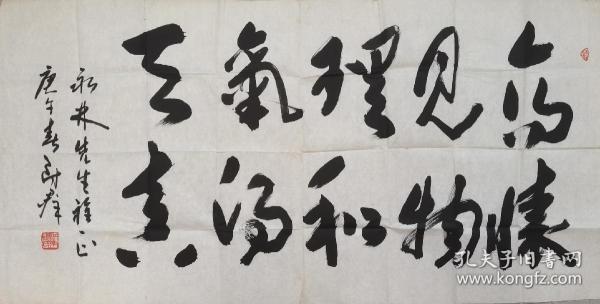 高懷
見物
理和
氣得
天真
永林先生雅正
庚午春
孔夫子旧书网
www.kongfz.com